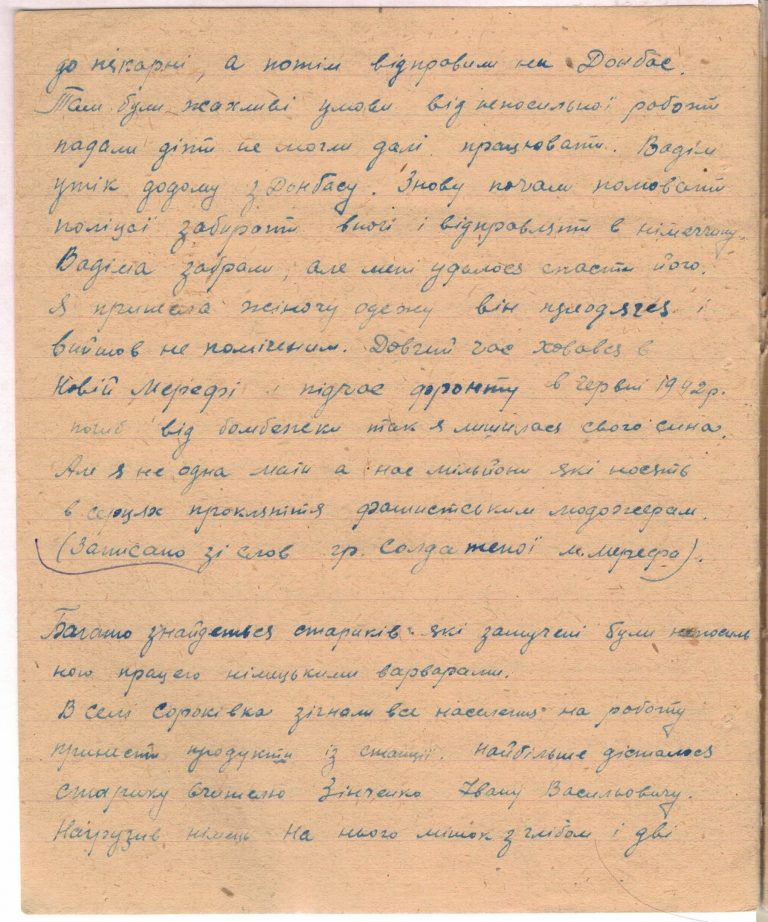 до пекарні, а потім відправили на Донбас.
Там були жахливі умови від непосильної роботи
падали діти не могли далі працювати. Вадім
утік додому з Донбасу. Знову почали полювати
поліцаї забирати вночі і відправляти в німеччину.
Вадіма забрали, але мені удалося спасти його.
Я принесла жіночу одежу він переодягся і
вийшов не поміченим. Довгий час ховався в
Новій Мерефі і підчас фронту в червні 1942р.
погиб від бомбежки так я лишилася свого сина.
Але я не одна мати а нас мільйони які носять
в серцях прокляття фашистським людожерам.
(Записано зі слов гр. Солдатеної м. Мерефа).
Багато знайдеться стариків які замучені були непосиль
ною працею німецькими варварами.
В селі Сороківка зігнали все населення на роботу
принести продукти із станції. Найбільше дісталося
старику вчителю Зінченко Івану Васильовичу.
Нагрузив німець на нього мішок з хлібом і дві